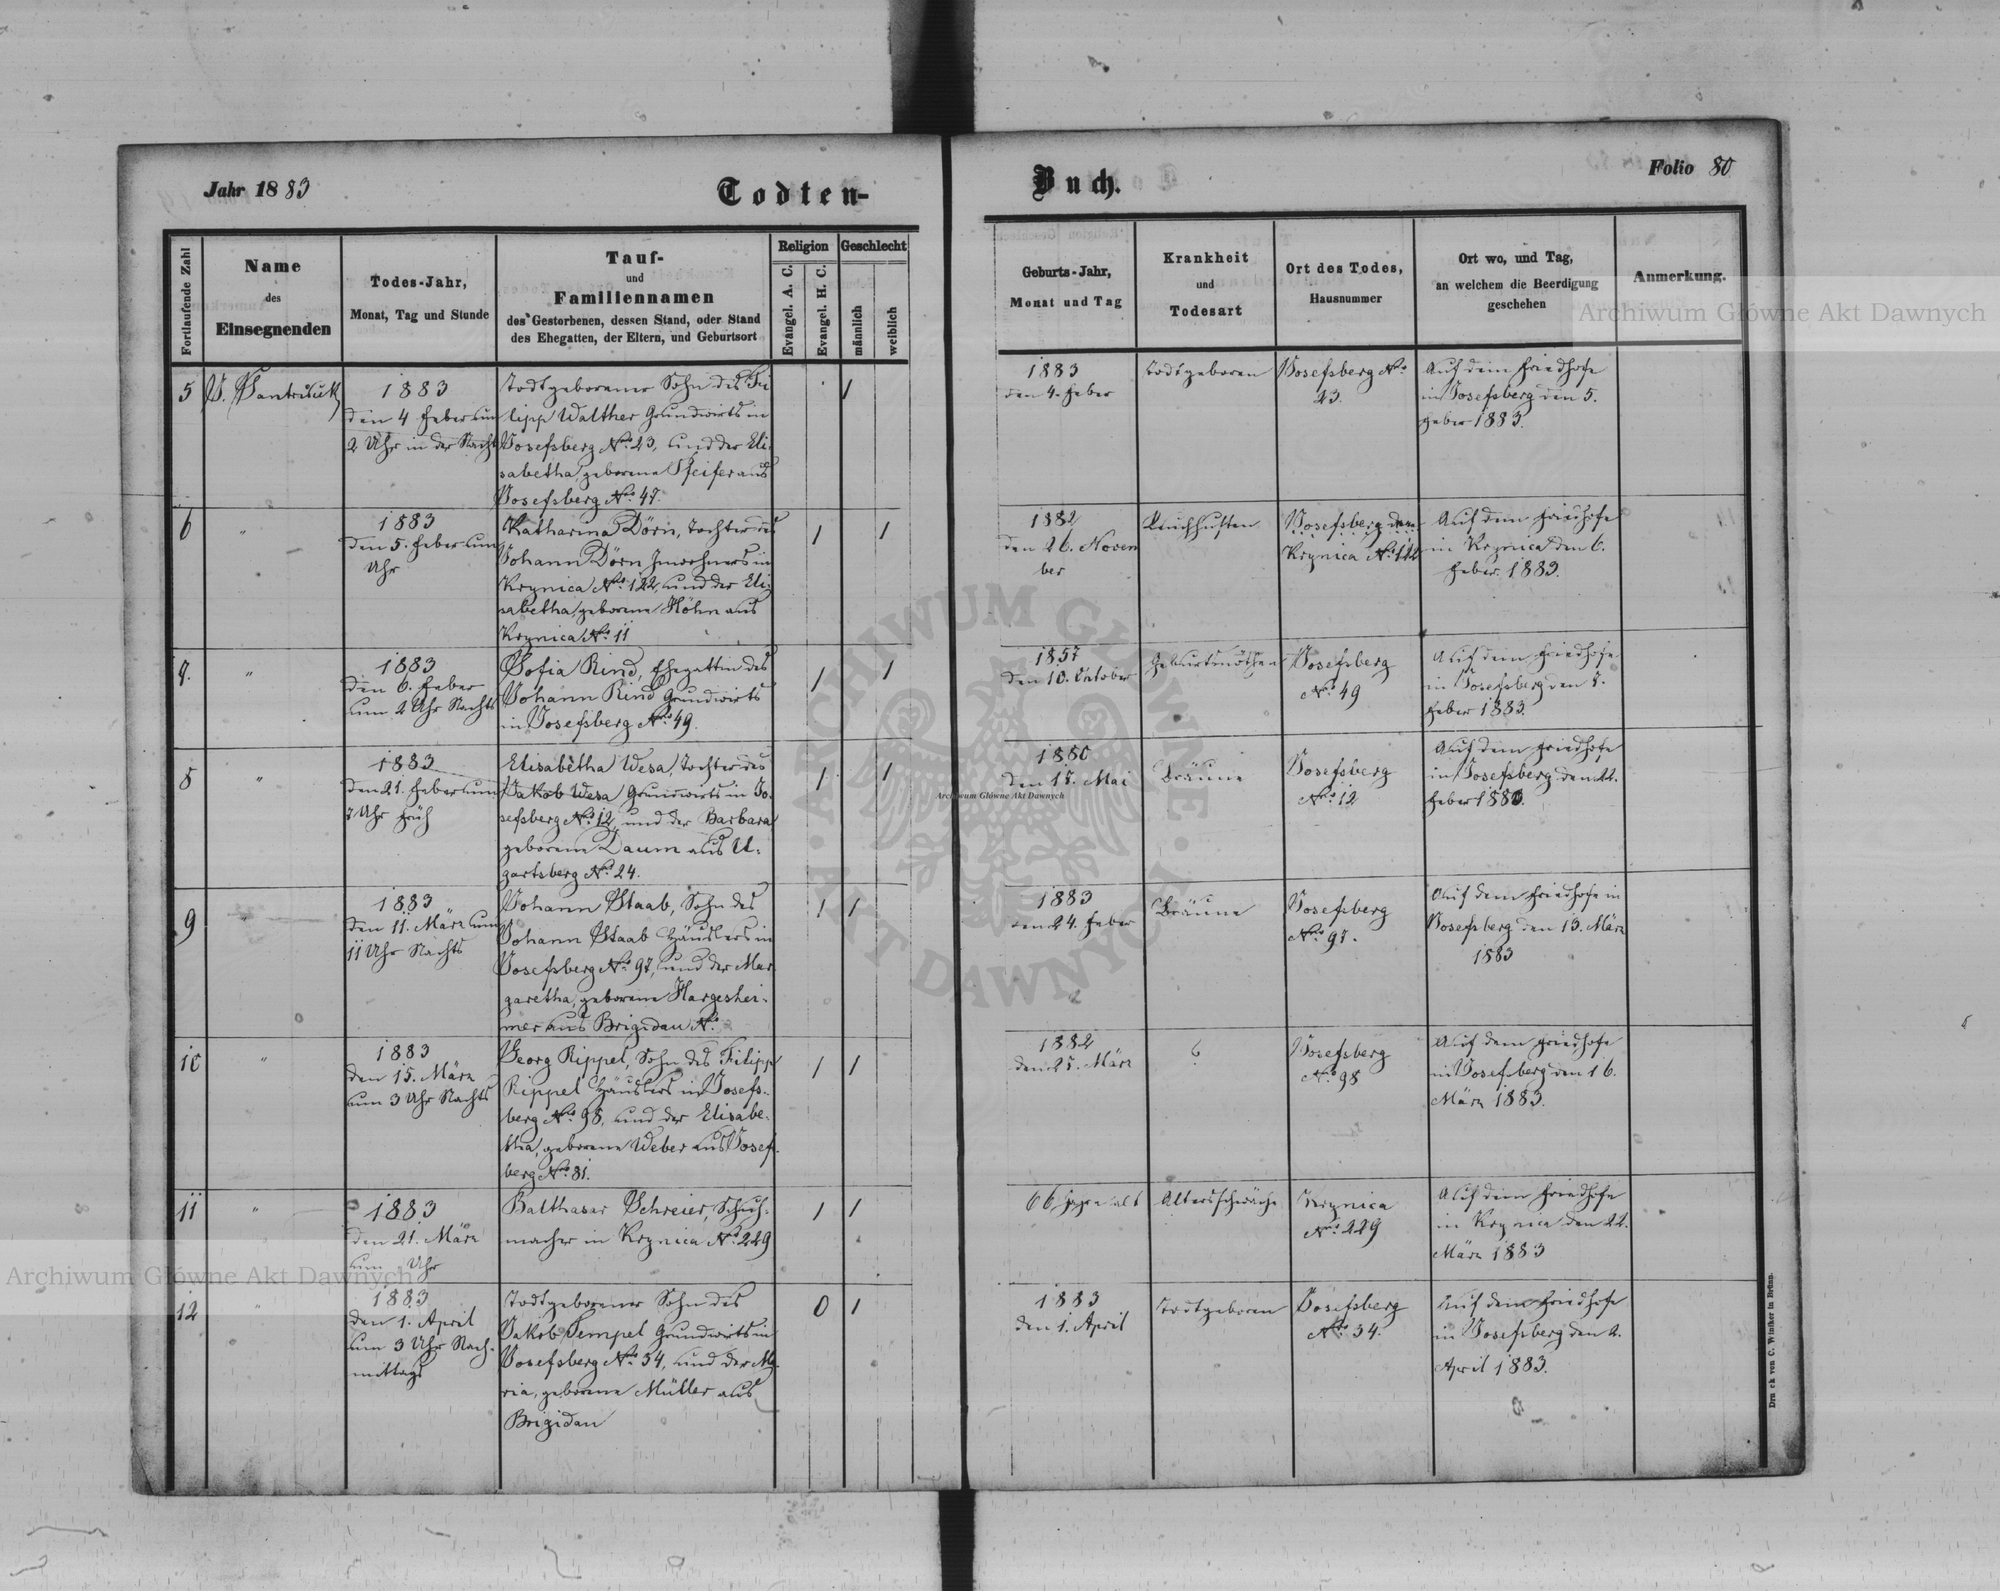 Jahr 1883
Todten-
Buch.
Folio 80
Fortlaufende Zahl
Name
des
Einsegnenden
Todes-Jahr,
Monat, Tag und Stunde
Tauf-
und
Familiennamen
des Gestorbenen, dessen Stand, oder Stand
des Ehegatten, der Eltern, und Geburtsort
Religion
Evangel. A. C.
Evangel. H. C.
Geschlecht
männlich
weiblich
Geburts-Jahr,
Monat und Tag
Krankheit
und
Todesart
Ort des Todes,
Hausnummer
Ort wo, und Tag,
an welchem die Beerdigung
geschehen
Anmerkung.
5
1883
den 4 Feber um
2 Uhr in der Nacht
Todtgeborener Sohn des Fi
lipp Walther Grundwirts in
Josefsberg No 23, und der Eli
sabetha, geborene Pfeifer aus
Josefsberg No 47.
1
1883
den 4. Feber
Todtgeboren
Josefsberg No
23.
Auf dem Friedhofe
in Josefsberg den 5.
Feber 1883.
6
"
1883
den 5. Feber um
Uhr
Katharina Dörn, Tochter des
Johann Dörn Inwohners in
Krynica No 122, und der Eli
sabetha, geborene Höhn aus
Krynica No 11
1
1
1882
den 26. Novem
ber
Keichhusten
Josefsberg
Krynica No 122
Auf dem Friedhofe
in Krynica den 6.
Feber. 1883.
7.
"
1883
den 6. Feber
um 2 Uhr Nachts
Sofia Rind, Ehegattin des
Johann Rind Grundwirts
in Josefsberg No 49.
1
1
1857
den 10. Oktober
Geburtsnöthen
Josefsberg
No 49
Auf dem Friedhofe
in Josefsberg den 7.
Feber 1883.
8
"
1883
den 21. Feber um
7 Uhr früh
Elisabetha Wesa, Tochter des
Jakob Wesa Grundwirts in Jo
sefsberg No 12, und der Barbara
geborene Daum aus U-
gartsberg No 24.
1
1
1880
den 15. Mai
Bräune
Josefsberg
No 12
Auf dem Friedhofe
in Josefsberg den 22.
Feber 1883.
9
"
1883
den 11. März um
11 Uhr Nachts
Johann Staab, Sohn des
Johann Staab Häuslers in
Josefsberg No 97, und der Mar
garetha, geborene Hargeshei-
mer aus Brigidau No
1
1
1883
den 24. Feber
Bräune
Josefsberg
No 97.
Auf dem Friedhofe in
Josefsberg den 13. März
1883
10
"
1883
den 15. März
um 3 Uhr Nachts
Georg Rippel, Sohn des Filipp
Rippel Häuslers in Josefs-
berg No 98, und der Elisabe-
tha, geborene Weber aus Josefs-
berg No 81.
1
1
1882
den 25. März
?
Josefsberg
No 98
Auf dem Friedhofe
in Josefsberg den 16.
März 1883.
11
"
1883
den 21. März
um Uhr
Balthasar Schreier, Schuh-
macher in Krynica No 229
1
1
66 Jahre alt
Altersschwäche
Krynica
No 229
Auf dem Friedhofe
in Krynica den 22.
März 1883
12
"
1883
den 1. April
um 3 Uhr Nach-
mittags
Todtgeborener Sohn des
Jakob Tempel Grundwirts in
Josefsberg No 34, und der Ma
ria, geborene Müller aus
Brigidau
0
1
1883
den 1. April
Todtgeboren
Josefsberg
No 34.
Auf dem Friedhofe
in Josefsberg den 2.
April 1883.
Druck von C. Winiker in Brünn.
Archiwum Główne Akt Dawnych
Archiwum Główne Akt Dawnych
Archiwum Główne Akt Dawnych
ARCHIWUM GŁÓWNE AKT DAWNYCH